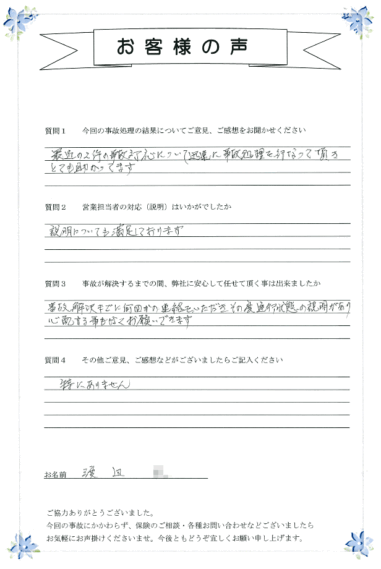 お客様の声
質問1 今回の事故処理の結果についてご意見、ご感想をお聞かせください
最近の2件の事故対応について迅速に事故処理を行なって頂き
とても助かってます
質問2 営業担当者の対応（説明）はいかがでしたか
説明についても満足しております
質問3 事故が解決するまでの間、弊社に安心して任せて頂く事は出来ましたか
事故解決までに何回かの連絡をいただき その度進行状態の説明があり
心配する事もなくお願いできます
質問4 その他ご意見、ご感想などがございましたらご記入ください
特にありません
お名前
ご協力ありがとうございました。
今回の事故にかかわらず、保険のご相談・各種お問い合わせなどございましたら
お気軽にお声掛けくださいませ。今後ともどうぞ宜しくお願い申し上げます。